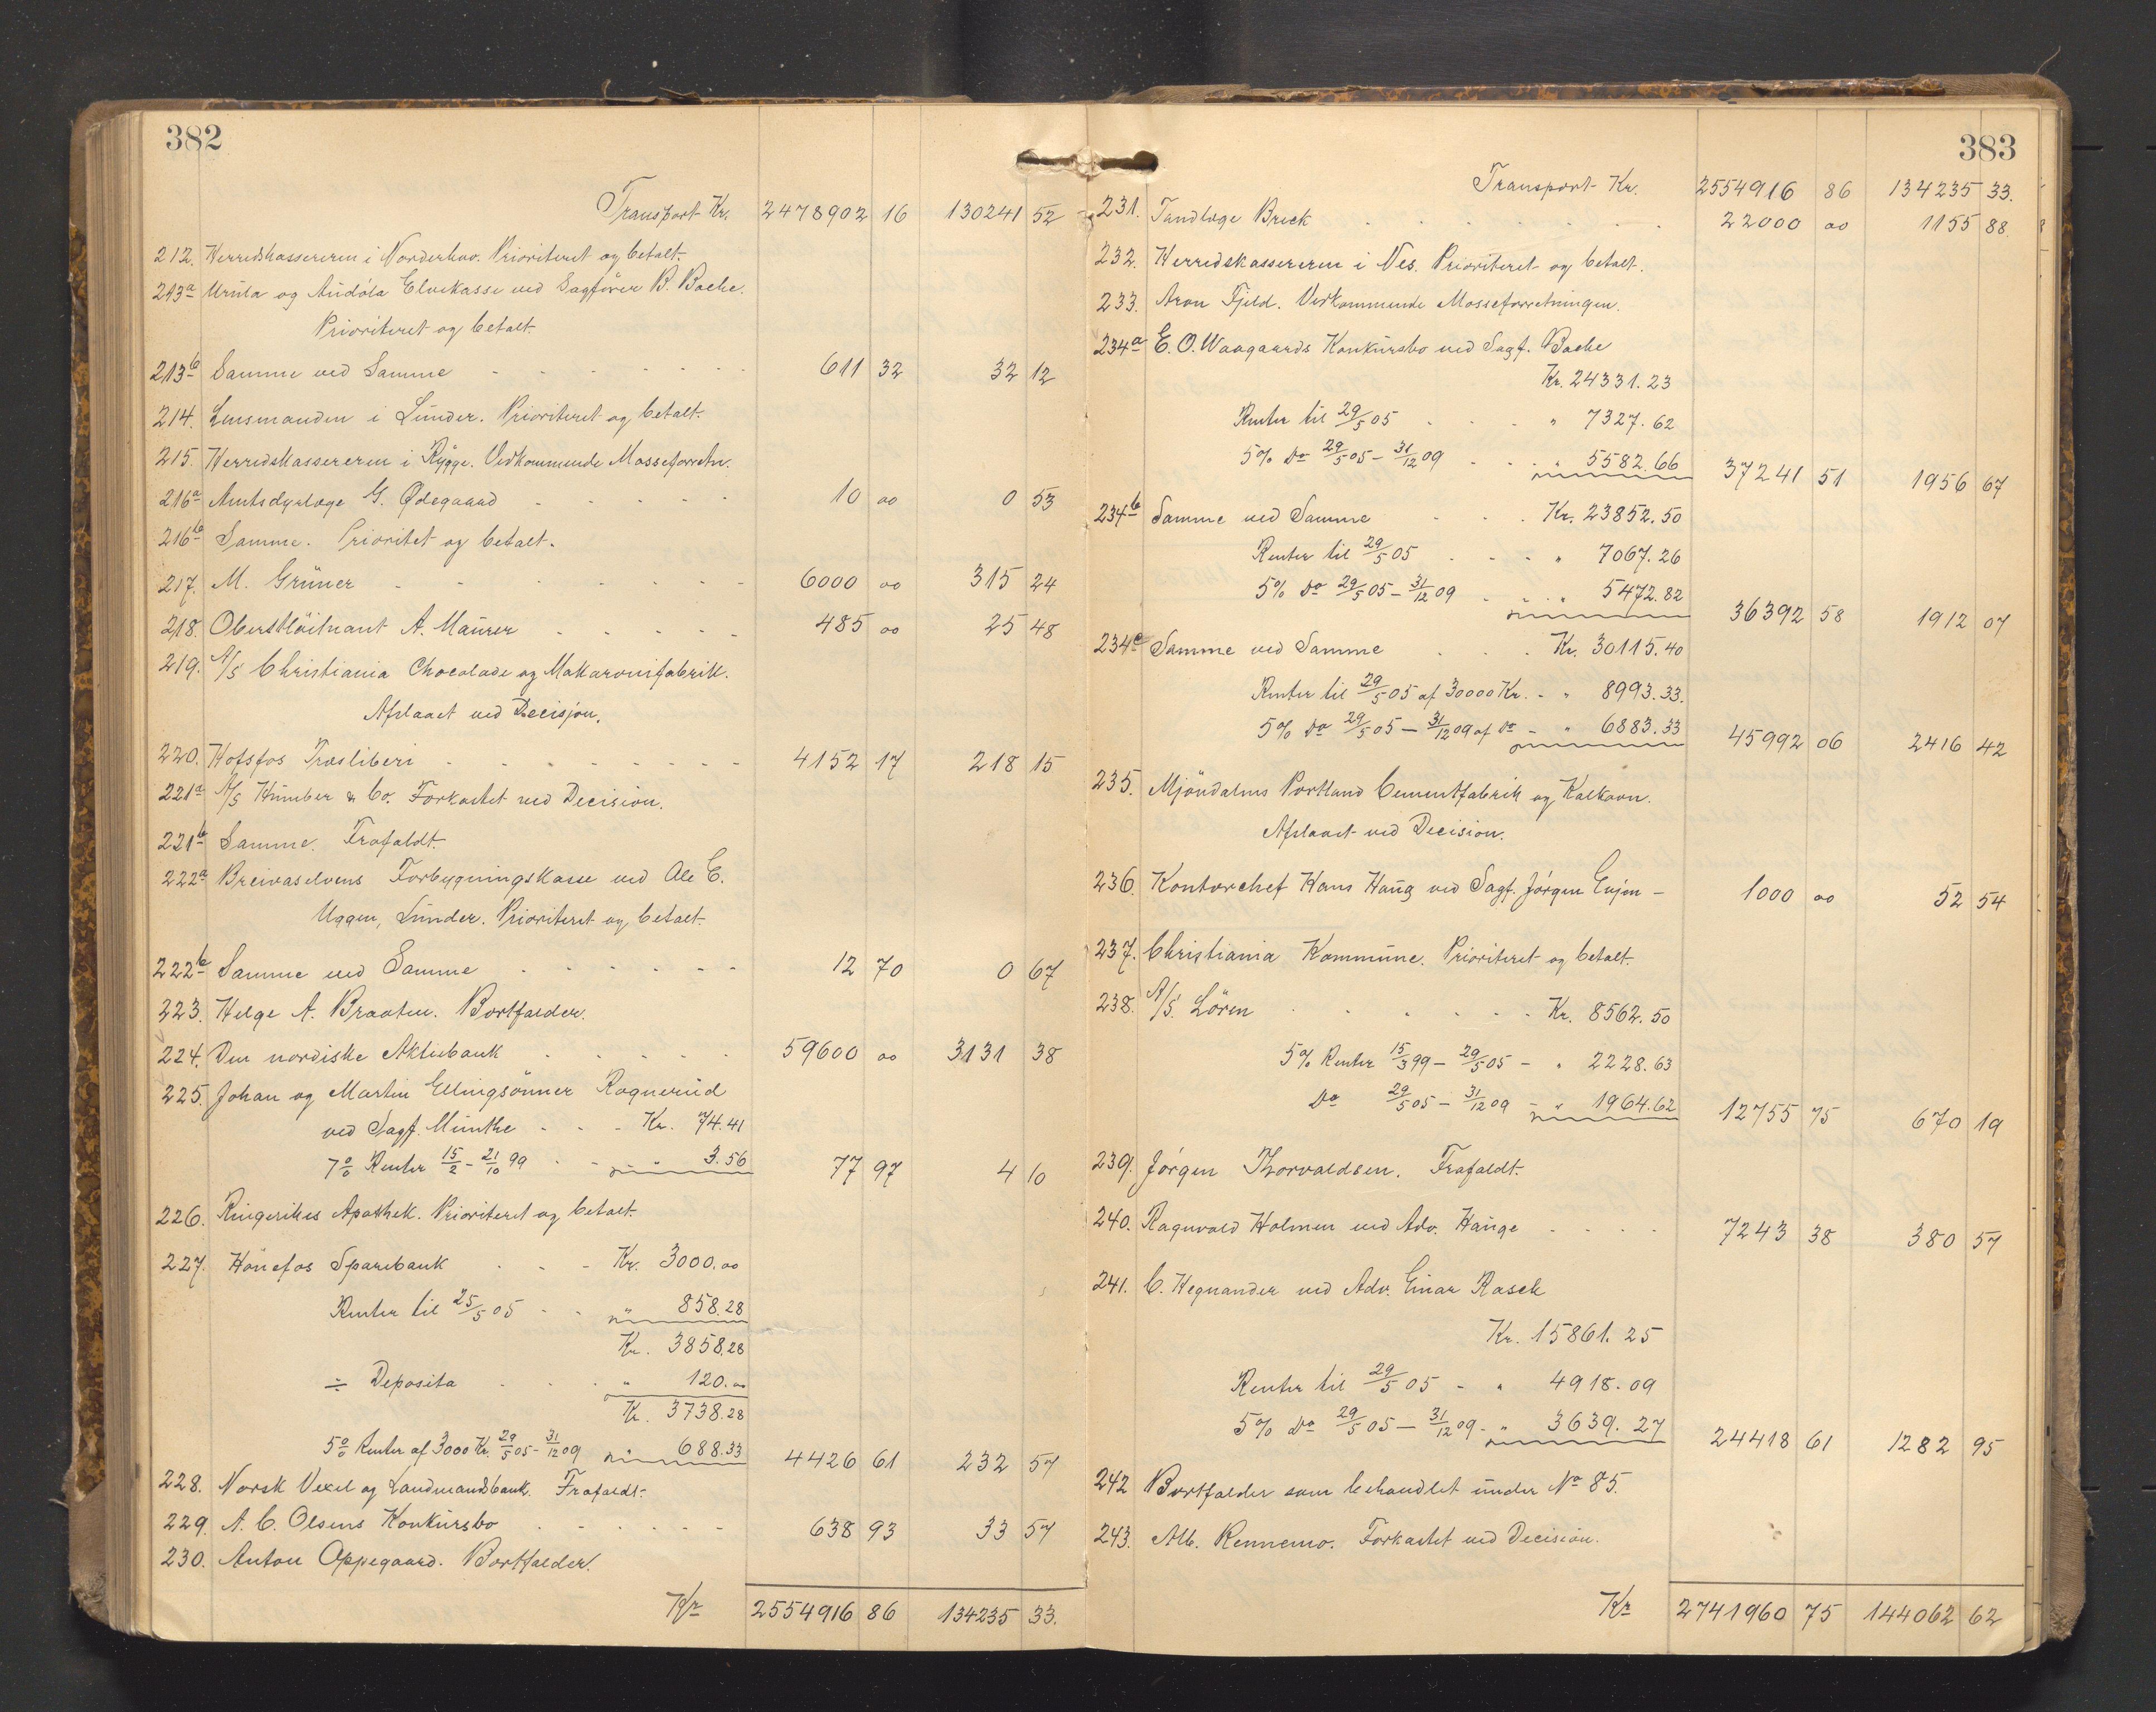 382
Transport Kr. 2478902 16 130241 52
212. Herredskassereren i Norderhov. Prioriteret og betalt.
213a Urula og Audöla Elvekasse ved Sagförer B. Bache.
Prioriteret og betalt.
213b Samme ved Samme 611 32 32 12
214. Lensmanden i Lunder. Prioriteret og betalt.
215. Herredskassereren i Rygge. Vedkommende Masseforretn.
216a Amtsdyrlæge G. Ødegaard 10 00 0 53
216b Samme. Prioritet og betalt.
217. M. Grüner 6000 00 315 24
218. Oberstlöitnant A. Maurer 485 00 25 48
219. A/S Christiania Chocolade og Makaronifabrik.
Afslaaet ved Decisjon.
220. Hofsfos Træsliberi 4152 17 218 15
221a A/S Humber & Co. Forkastet ved Decision.
221b Samme. Frafaldt.
222a Breivaselvens Forbygningskasse ved Ole E.
Uggen, Lunder. Prioriteret og betalt.
222b Samme ved Samme 12 70 0 67
223. Helge A. Braaten. Bortfalder.
224. Den nordiske Aktiebank 59600 00 3131 38
225. Johan og Martin Ellingsönner Ragnerud
ved Sagf. Münthe - - - Kr. 74.41
7% Renter 15/2 - 21/10 99 - - " 3.56 77 97 4 10
226. Ringerikes Apothek. Prioriteret og betalt.
227. Hönefos Sparebank - - - Kr. 3000.00
Renter til 25/5 05 - - " 858.28
Kr. 3858.28
÷ Deposita " 120.00
Kr. 3738.28
5% Renter af 3000 Kr. 29/5 05 - 31/12 09 " 688.33 4426 61 232 57
228. Norsk Vexel og Landmandsbank. Frafaldt.
229. A. C. Olsens Konkursbo 638 93 33 57
230. Anton Oppegaard. Bortfalder.
Kr 2554916 86 134235 33.
383
Transport Kr. 2554916 86 134235 33.
231. Tandlæge Breck 22000 00 1155 88.
232. Herredskassereren i Nes. Prioriteret og betalt.
233. Aron Fjeld. Vedkommende Masseforretningen.
234a E. O. Waagaards Konkursbo ved Sagf. Bache
Kr. 24331.23
Renter til 29/5 05 " 7327.62
5% Do 29/5 05 - 31/12 09 " 5582.66 37241 51 1956 67
234b Samme ved Samme Kr. 23852.50
Renter til 29/5 05 " 7067.26
5% Do 29/5 05 - 31/12 09 " 5472.82 36392 58 1912 07
234c Samme ved Samme Kr. 30115.40
Renter til 29/5 05 af 30000 Kr. - " 8993.33.
5% Do 29/5 05 - 31/12 09 af Do - " 6883.33 45992 06 2416 42
235. Mjöndalens Portland Cementfabrik og Kalkovn.
Afslaaet ved Decision.
236. Kontorchef Hans Haug ved Sagf. Jörgen Evjen - 1000 00 52 54
237. Christiania Kommune. Prioriteret og betalt.
238. A/S. Lören Kr. 8562.50
5% Renter 15/3 99 - 29/5 05 - " 2228.63
Do 29/5 05 - 31/12 09 - " 1964.62 12755 75 670 19
239. Jörgen Thorvaldsen. Frafaldt.
240. Ragnvald Holmen ved Adv. Hauge 7243 38 380 57
241. C. Hegnander ved Adv. Einar Rasch
Kr. 15861.25
Renter til 29/5 05 - " 4918.09
5% Do 29/5 05 - 31/12 09 - " 3639.27 24418 61 1282 95
242 Bortfalder som behandlet under No 85.
243. Alb. Rennemo. Forkastet ved Decision.
Kr 2741960 75 144062 62